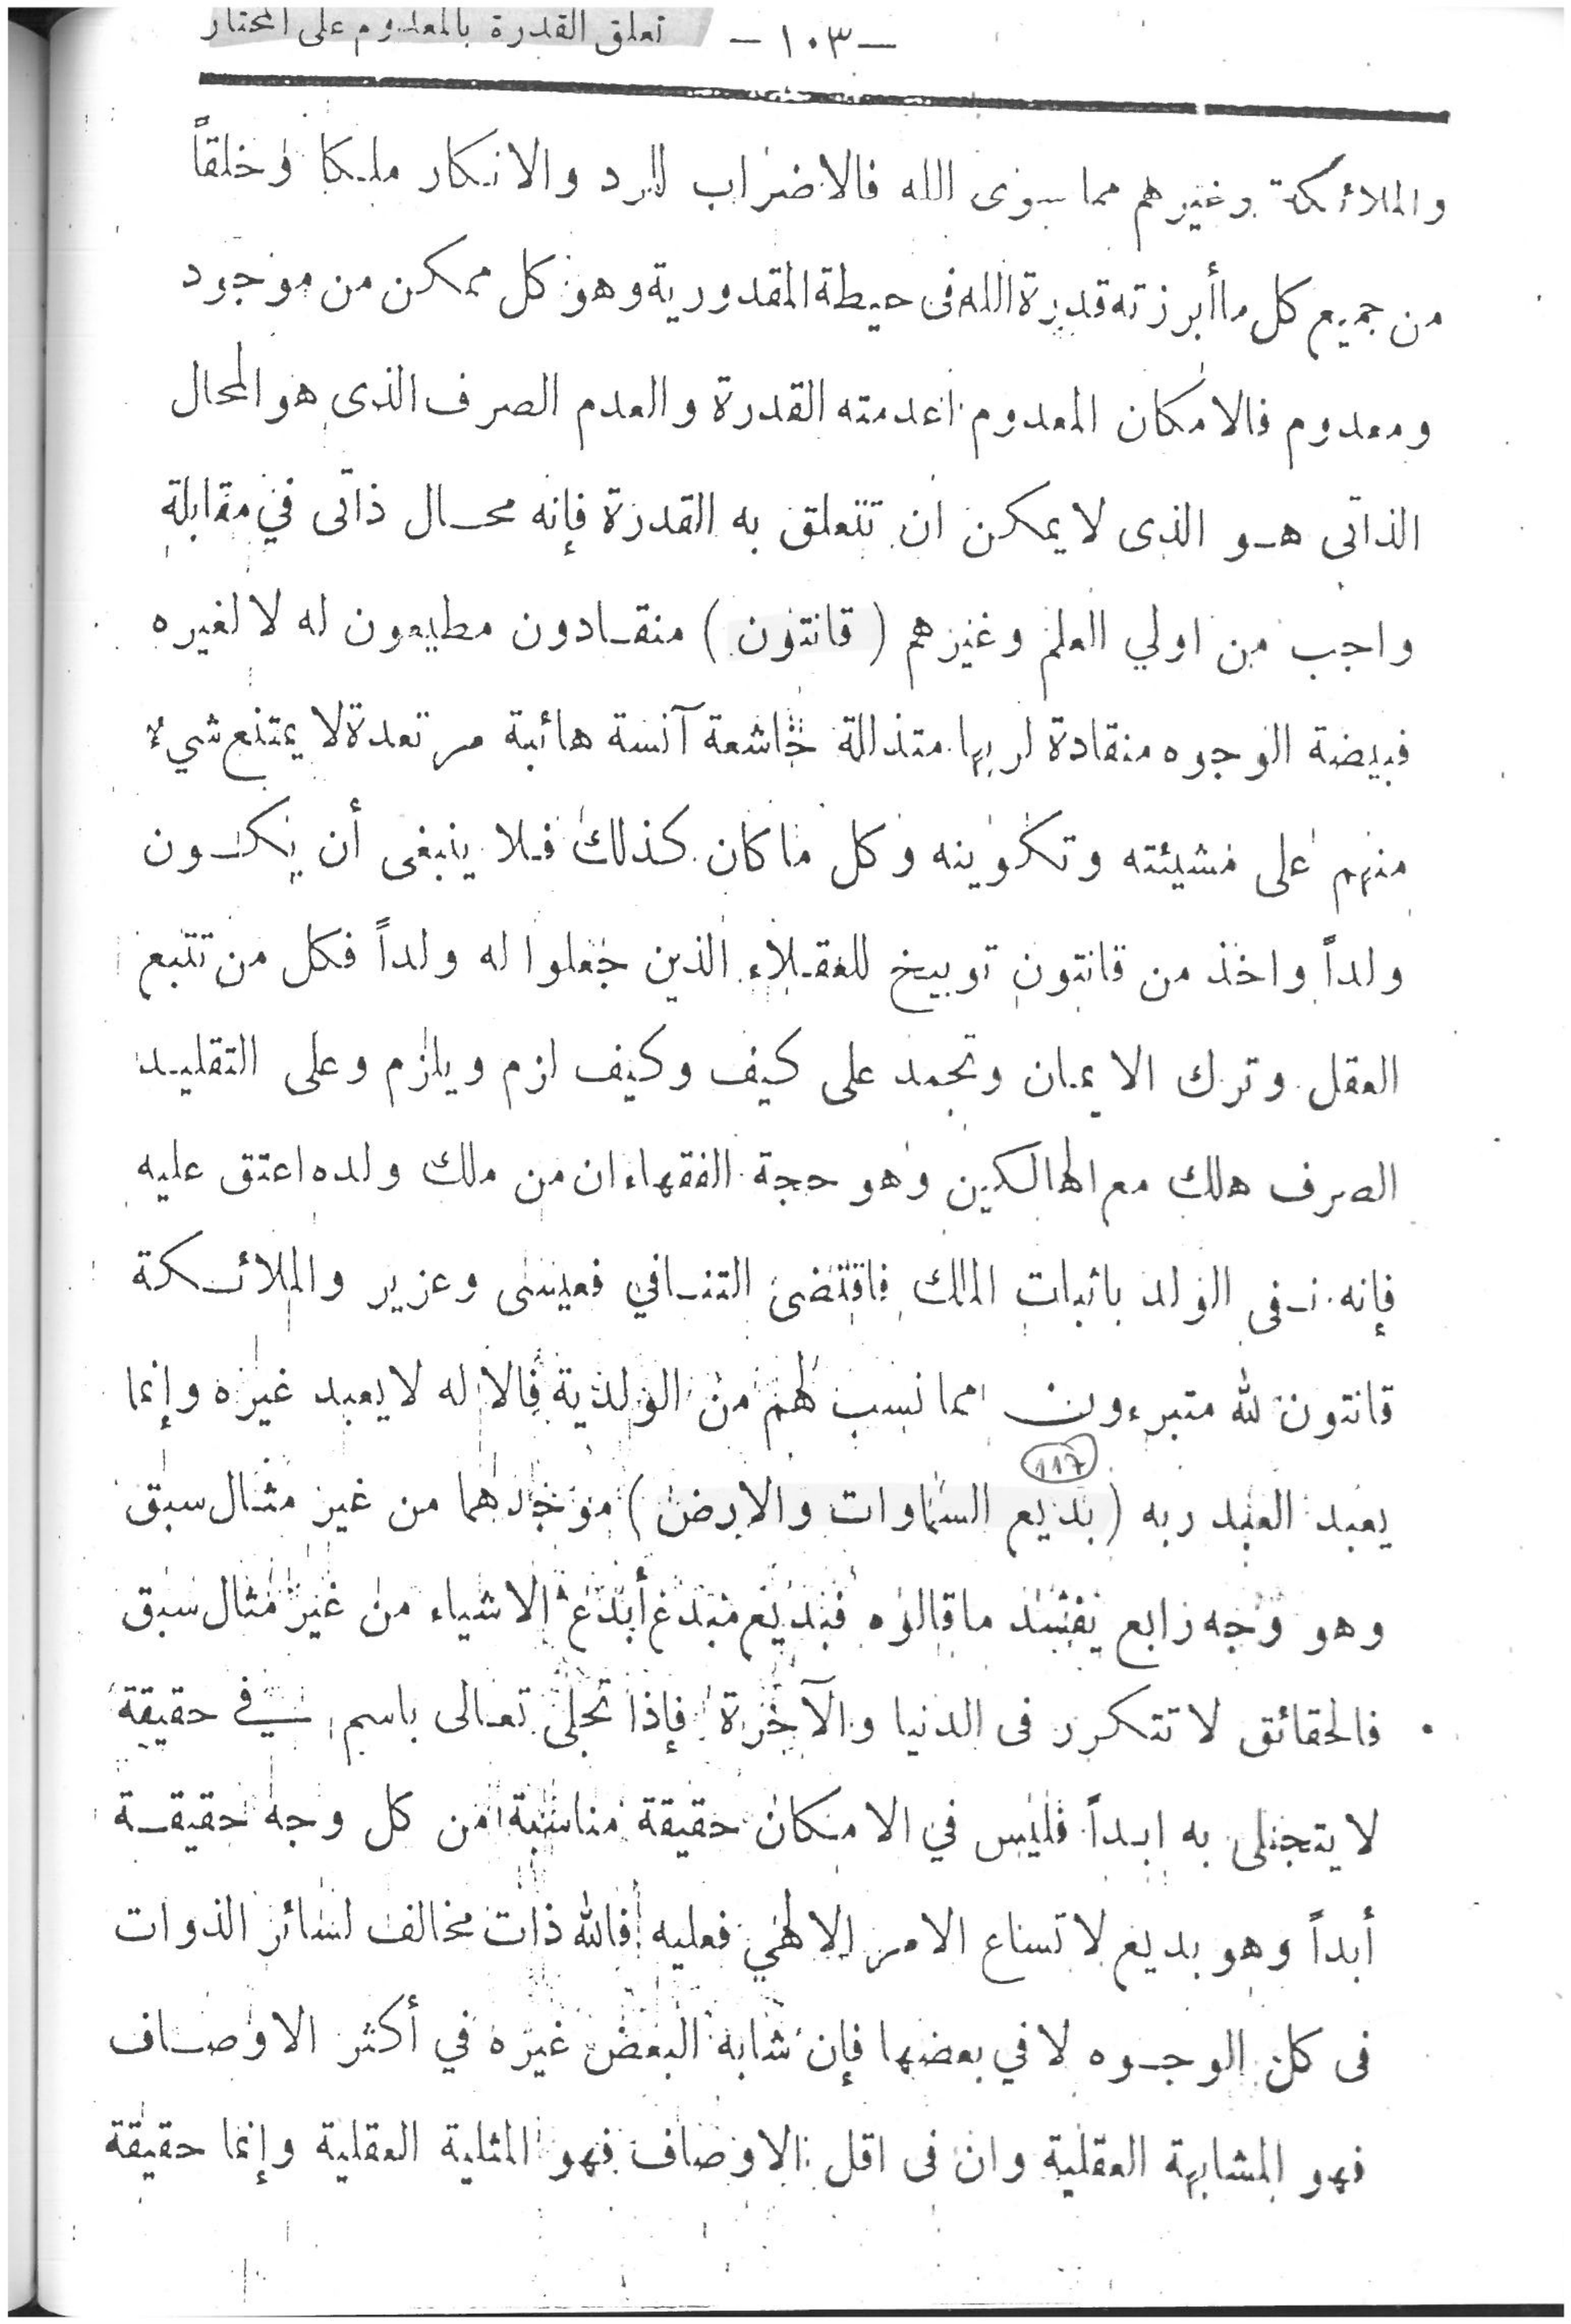 تعلق القدرة بالمعدوم على المختار — ١٠٣ —
والملائكة وغيرهم مما سوى الله فالاضراب للرد والانكار ملكا وخلقاً
من جميع كل ما أبرزته قدرة الله فى حيطة المقدورية وهو كل ممكن من موجود
ومعدوم فالامكان المعدوم اعدمته القدرة والعدم الصرف الذى هو المحال
الذاتى هو الذى لا يمكن ان تتعلق به القدرة فإنه محال ذاتى في مقابلة
واجب من اولي العلم وغيرهم ( قانتون ) منقادون مطيعون له لا لغيره
فبيضة الوجوه منقادة لربها متذللة خاشعة آنسة هائبة مرتعدة لا يمتنع شيء
منهم على مشيئته وتكوينه وكل ما كان كذلك فلا ينبغى أن يكون
ولداً واخذ من قانتون توبيخ للعقلاء الذين جعلوا له ولداً فكل من تتبع
العقل وترك الايمان وتجمد على كيف وكيف لزم ويلزم وعلى التقليد
الصرف هلك مع الهالكين وهو حجة الفقهاء ان من ملك ولده اعتق عليه
فإنه نفى الولد باثبات الملك فاقتضى التنافي فعيسى وعزير والملائكة
قانتون لله متبرءون مما نسب لهم من الولدية فالاله لا يعبد غيره وإنما
117
يعبد العبد ربه ( بديع السماوات والارض ) موجدهما من غير مثال سبق
وهو وجه رابع يفسد ما قالوه فبديع مبدع أبدع الاشياء من غير مثال سبق
فالحقائق لا تتكرر فى الدنيا والآخرة فإذا تجلى تعالى باسم في حقيقة
لا يتجلى به ابداً فليس في الامكان حقيقة مناسبة من كل وجه حقيقة
أبداً وهو بديع لاتساع الامر الالهي فعليه فالله ذات مخالف لسائر الذوات
فى كل الوجوه لا في بعضها فإن شابه البعض غيره في أكثر الاوصاف
فهو المشابهة العقلية وان فى اقل الاوصاف فهو المثلية العقلية وإنما حقيقة